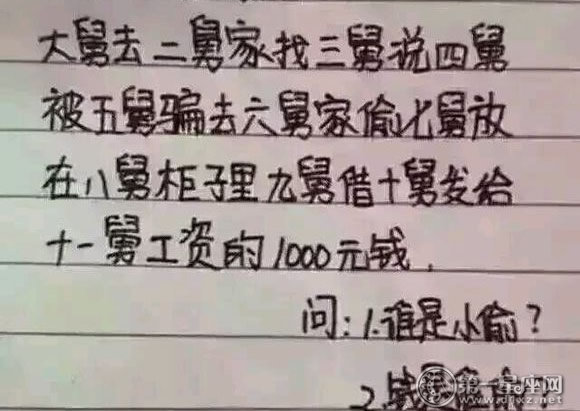 大舅去二舅家找三舅说四舅
被五舅骗去六舅家偷七舅放
在八舅柜子里九舅借十舅发给
十一舅工资的1000元钱.
问:1.谁是小偷?
2.钱
第一星座网
d1xz.net